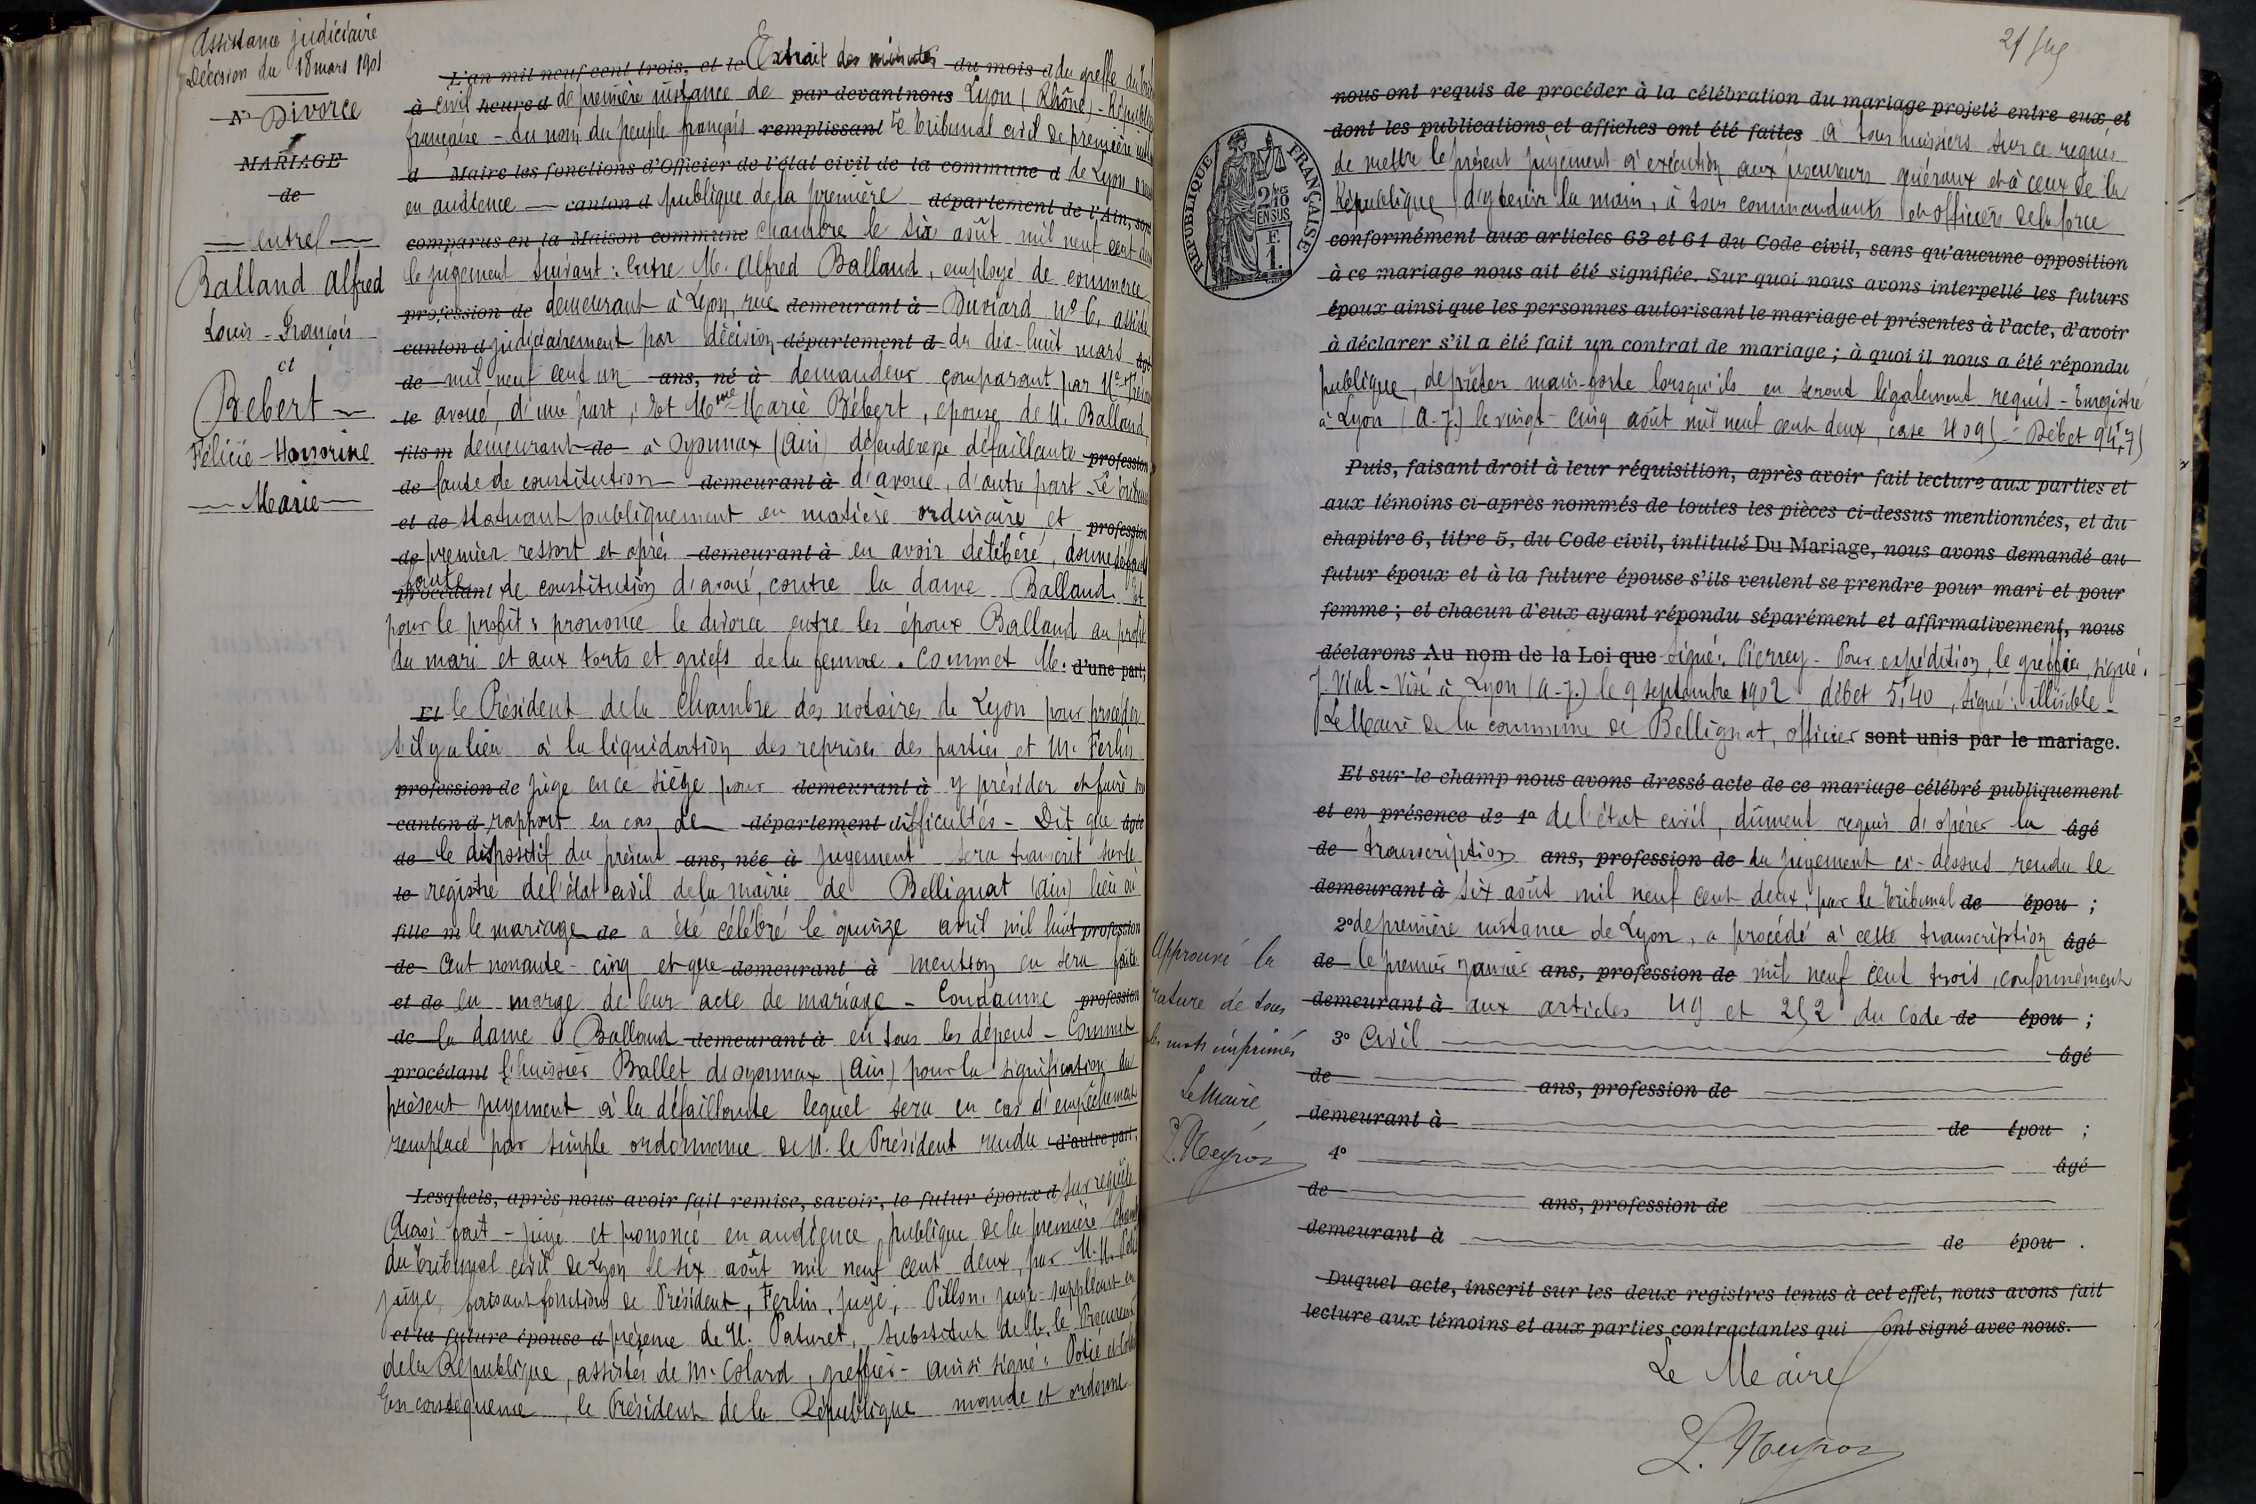 Assistance judiciaire
Décision du 18 mars 1901
N° Divorce
MARIAGE
de
entre
Balland Alfred
Louis-François
et
Bébert
Félicie-Honorine
Marie
L'an mil neuf cent trois, et le Extrait des minutes du mois d du greffe du
à civil heure d de première instance de par devant nous Lyon (Rhône) - République
française - Au nom du peuple français remplissant Le tribunal civil de première
d Maire les fonctions d'Officier de l'état civil de la commune d de Lyon
en audience canton d publique de la première département de l'Ain, sont
comparus en la Maison commune chambre le six août mil neuf cent deux
le jugement suivant : Entre M. Alfred Balland, employé de commerce
profession de demeurant à Lyon, rue demeurant à Duviard n° 6, assisté
canton d judiciairement par décision département d du dix-huit mars âgé
de mil neuf cent un ans, né à demandeur comparant par Me
le avoué, d'une part ; Et Mme Marie Bébert, épouse de M. Balland
fils m demeurant de à Oyonnax (Ain) défenderesse défaillante profession
de faute de constitution demeurant à d'avoué, d'autre part - Le tribunal
et de statuant publiquement en matière ordinaire et profession
de premier ressort et après demeurant à en avoir délibéré, donne défaut
procédant faute de constitution d'avoué, contre la dame Balland. Et
pour le profit : prononce le divorce entre les époux Balland au profit
du mari et aux torts et griefs de la femme. Commet M. d'une part;
Et le Président de la Chambre des notaires de Lyon pour procéder
s'il y a lieu à la liquidation des reprises des parties et M. Ferlin
profession de juge en ce siège pour demeurant à y présider et faire son
canton d rapport en cas de département difficultés - Dit que âgée
de le dispositif du présent ans, née à jugement sera transcrit sur le
le registre de l'état civil de la mairie de Bellignat (Ain) lieu où
fille m le mariage de a été célébré le quinze avril mil huit profession
de cent nonante-cinq et que demeurant à mention en sera faite
et de en marge de leur acte de mariage - Condamne profession
de la dame Balland demeurant à en tous les dépens - Commet
procédant l'huissier Ballet d'Oyonnax (Ain) pour la signification du
présent jugement à la défaillante lequel sera en cas d'empêchement
remplacé par simple ordonnance de M. le Président rendu d'autre part.
Lesquels, après nous avoir fait remise, savoir, le futur époux d sur requête
Ainsi fait - jugé et prononcé en audience publique de la première
du Tribunal civil de Lyon le six août mil neuf cent deux, par M.M.
juge, faisant fonctions de Président, Ferlin, juge, Pillon, juge-suppléant en
et la future épouse d présence de M. Paturet, substitut de M. le Procureur
de la République, assistés de Me Colard, greffier - ainsi signé : Potié et Colard
En conséquence, le Président de la République mande et ordonne
RÉPUBLIQUE FRANÇAISE
2/10
EN SUS
F.
1.
nous ont requis de procéder à la célébration du mariage projeté entre eux et
dont les publications et affiches ont été faites à tous huissiers sur ce requis
de mettre le présent jugement à exécution aux procureurs généraux et à ceux de la
République d'y tenir la main, à tous commandants et officiers de la force
conformément aux articles 63 et 64 du Code civil, sans qu'aucune opposition
à ce mariage nous ait été signifiée. Sur quoi nous avons interpellé les futurs
époux ainsi que les personnes autorisant le mariage et présentes à l'acte, d'avoir
à déclarer s'il a été fait un contrat de mariage ; à quoi il nous a été répondu
publique, de prêter main-forte lorsqu'ils en seront légalement requis - Enregistré
à Lyon (A.J.) le vingt-cinq août mil neuf cent deux, case
Puis, faisant droit à leur réquisition, après avoir fait lecture aux parties et
aux témoins ci-après nommés de toutes les pièces ci-dessus mentionnées, et du
chapitre 6, titre 5, du Code civil, intitulé Du Mariage, nous avons demandé au
futur époux et à la future épouse s'ils veulent se prendre pour mari et pour
femme ; et chacun d'eux ayant répondu séparément et affirmativement, nous
déclarons Au nom de la Loi que signé : Pierrey - Pour expédition, le greffier, signé :
J. Vial - Visé à Lyon (A.J.) le 9 septembre 1902 débet 5,40, signé : illisible -
Le Maire de la commune de Bellignat, officier sont unis par le mariage.
Et sur-le-champ nous avons dressé acte de ce mariage célébré publiquement
et en présence de 1° de l'état civil, dûment requis d'opérer la âgé
de transcription ans, profession de du jugement ci-dessus rendu le
demeurant à six août mil neuf cent deux, par le Tribunal de épou ;
2° de première instance de Lyon, a procédé à cette transcription âgé
de le premier janvier ans, profession de mil neuf cent trois, conformément
demeurant à aux articles 49 et 252 du Code de épou ;
3° Civil âgé
de ans, profession de
demeurant à de épou ;
4° âgé
de ans, profession de
demeurant à de épou .
Duquel acte, inscrit sur les deux registres tenus à cet effet, nous avons fait
lecture aux témoins et aux parties contractantes qui ont signé avec nous.
Le Maire
Approuvé la
rature de tous
les mots imprimés
Le Maire